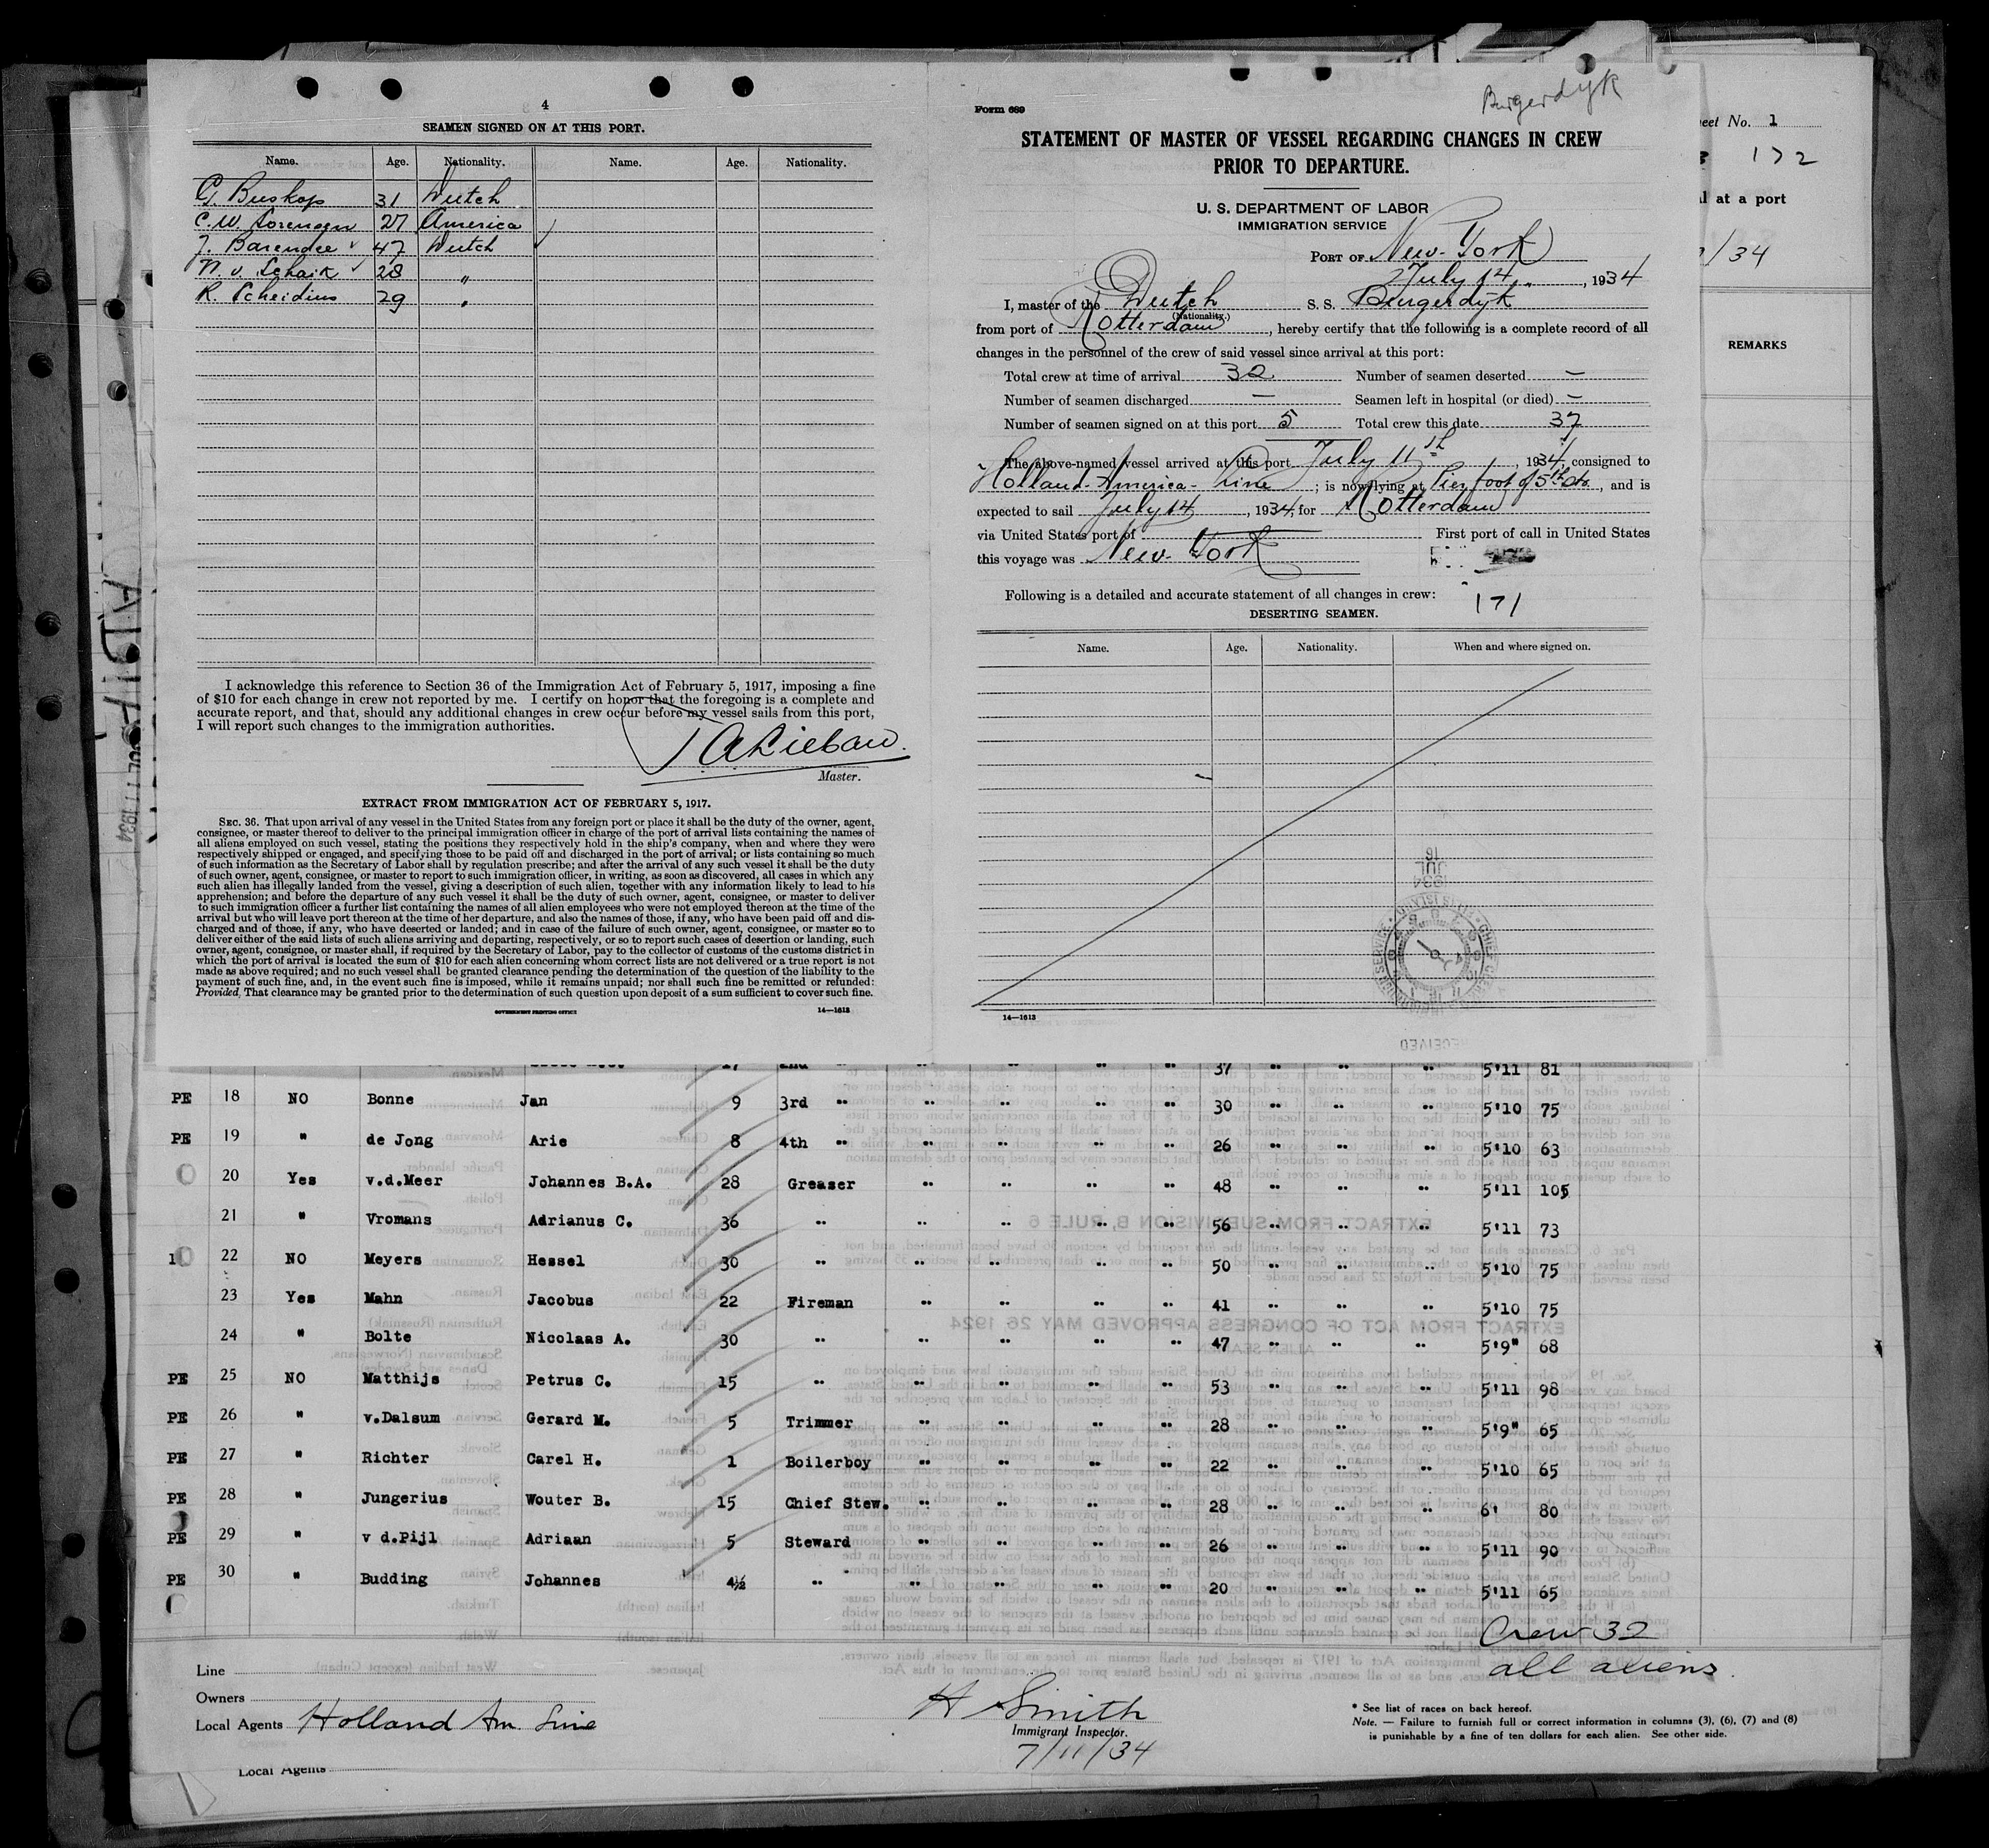 4
SEAMEN SIGNED ON AT THIS PORT.
Name. Age. Nationality. Name. Age. Nationality.
G. Buskop 31 Dutch
C.W. Sorensen 27 America
J. Barendse 47 Dutch
N. v. Schaik 28 "
R. Scheidius 29 "
I acknowledge this reference to Section 36 of the Immigration Act of February 5, 1917, imposing a fine
of $10 for each change in crew not reported by me. I certify on honor that the foregoing is a complete and
accurate report, and that, should any additional changes in crew occur before my vessel sails from this port,
I will report such changes to the immigration authorities.
Master.
EXTRACT FROM IMMIGRATION ACT OF FEBRUARY 5, 1917.
SEC. 36. That upon arrival of any vessel in the United States from any foreign port or place it shall be the duty of the owner, agent,
consignee, or master thereof to deliver to the principal immigration officer in charge of the port of arrival lists containing the names of
all aliens employed on such vessel, stating the positions they respectively hold in the ship's company, when and where they were
respectively shipped or engaged, and specifying those to be paid off and discharged in the port of arrival; or lists containing so much
of such information as the Secretary of Labor shall by regulation prescribe; and after the arrival of any such vessel it shall be the duty
of such owner, agent, consignee, or master to report to such immigration officer, in writing, as soon as discovered, all cases in which any
such alien has illegally landed from the vessel, giving a description of such alien, together with any information likely to lead to his
apprehension; and before the departure of any such vessel it shall be the duty of such owner, agent, consignee, or master to deliver
to such immigration officer a further list containing the names of all alien employees who were not employed thereon at the time of the
arrival but who will leave port thereon at the time of her departure, and also the names of those, if any, who have been paid off and dis-
charged and of those, if any, who have deserted or landed; and in case of the failure of such owner, agent, consignee, or master so to
deliver either of the said lists of such aliens arriving and departing, respectively, or so to report such cases of desertion or landing, such
owner, agent, consignee, or master shall, if required by the Secretary of Labor, pay to the collector of customs of the customs district in
which the port of arrival is located the sum of $10 for each alien concerning whom correct lists are not delivered or a true report is not
made as above required; and no such vessel shall be granted clearance pending the determination of the question of the liability to the
payment of such fine, and, in the event such fine is imposed, while it remains unpaid; nor shall such fine be remitted or refunded:
Provided, That clearance may be granted prior to the determination of such question upon deposit of a sum sufficient to cover such fine.
GOVERNMENT PRINTING OFFICE 14—1613
Burgerdyk
Form 689
STATEMENT OF MASTER OF VESSEL REGARDING CHANGES IN CREW
PRIOR TO DEPARTURE.
U. S. DEPARTMENT OF LABOR
IMMIGRATION SERVICE
PORT OF New-York
July 14, 1934
I, master of the Dutch S. S. Burgerdyk
(Nationality.)
from port of Rotterdam, hereby certify that the following is a complete record of all
changes in the personnel of the crew of said vessel since arrival at this port:
Total crew at time of arrival 32 Number of seamen deserted —
Number of seamen discharged — Seamen left in hospital (or died) —
Number of seamen signed on at this port 5 Total crew this date 37
The above-named vessel arrived at this port July 11th, 1934, consigned to
Holland-America-Line; is now lying at Pier foot of 5th St., and is
expected to sail July 14, 1934, for Rotterdam
via United States port of — First port of call in United States
this voyage was New-York
Following is a detailed and accurate statement of all changes in crew:
171
DESERTING SEAMEN.
Name. Age. Nationality. When and where signed on.
14—1613
eet No. 1
172
l at a port
/34
REMARKS
17 2nd " " " " 37 " " " 5'11 81
PE 18 NO Bonne Jan 9 3rd " " " " " 30 " " " 5'10 75
PE 19 " de Jong Arie 8 4th " " " " " 26 " " " 5'10 63
20 Yes v.d.Meer Johannes B.A. 28 Greaser " " " " 48 " " " 5'11 105
21 " Vromans Adrianus C. 36 " " " " " 56 " " " 5'11 73
1 22 NO Meyers Hessel 30 " " " " " 50 " " " 5'10 75
23 Yes Mahn Jacobus 22 Fireman " " " " 41 " " " 5'10 75
24 " Bolte Nicolaas A. 30 " " " " " 47 " " " 5'9" 68
PE 25 NO Matthijs Petrus C. 15 " " " " " 53 " " " 5'11 98
PE 26 " v.Dalsum Gerard M. 5 Trimmer " " " " 28 " " " 5'9" 65
PE 27 " Richter Carel H. 1 Boilerboy " " " " 22 " " " 5'10 65
PE 28 " Jungerius Wouter B. 15 Chief Stew. " " " " 28 " " " 6' 80
PE 29 " v d.Pijl Adriaan 5 Steward " " " " 26 " " " 5'11 90
PE 30 " Budding Johannes 4½ " " " " " 20 " " " 5'11 65
Crew 32
all aliens.
Line
Owners
Local Agents Holland Am. Line
H Smith
Immigrant Inspector.
7/11/34
* See list of races on back hereof.
Note. — Failure to furnish full or correct information in columns (3), (6), (7) and (8)
is punishable by a fine of ten dollars for each alien. See other side.
Local Agents